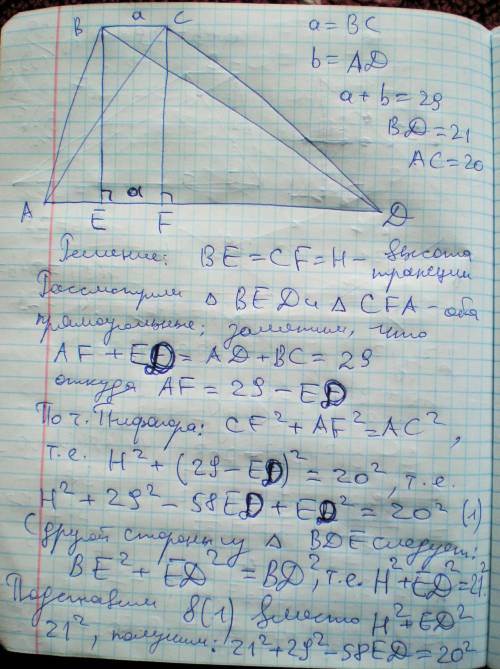 B a C
a = BC
b = AD
a + b = 29
BD = 21
AC = 20
A E a F D
Решение: BE = CF = H – высота
трапеции
Рассмотрим Δ BED и Δ CFA – оба
прямоугольные; заметим, что
AF + ED = AD + BC = 29
откуда AF = 29 – ED
По т. Пифагора: CF² + AF² = AC²,
т.е. H² + (29 – ED)² = 20², т.е.
H² + 29² – 58ED + ED² = 20² (1)
С другой стороны из Δ BDE следует:
BE² + ED² = BD², т.е. H² + ED² = 21².
Подставим в (1) вместо H² + ED²
21², получим: 21² + 29² – 58ED = 20²